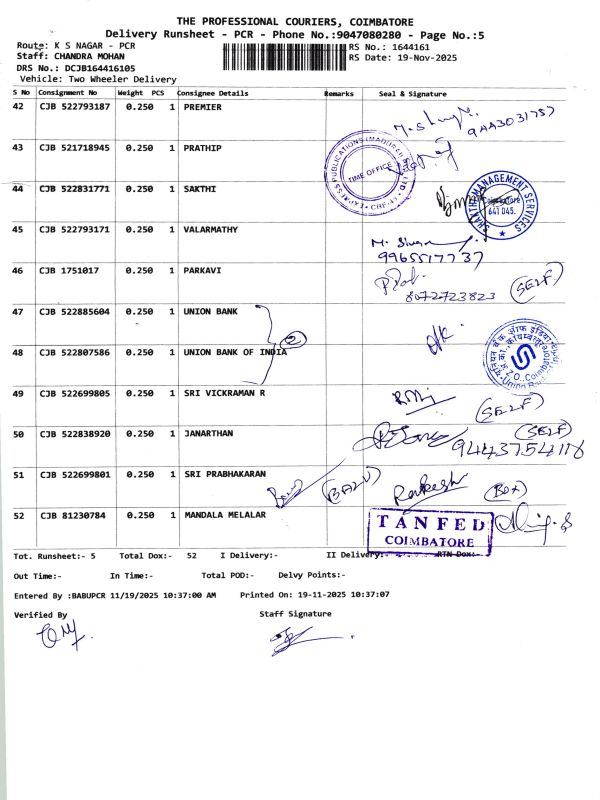 THE PROFESSIONAL COURIERS, COIMBATORE
Delivery Runsheet - PCR - Phone No.:9047080280 - Page No.:5
Route: K S NAGAR - PCR RS No.: 1644161
Staff: CHANDRA MOHAN RS Date: 19-Nov-2025
DRS No.: DCJB164416105
Vehicle: Two Wheeler Delivery
S No Consignment No Weight PCS Consignee Details Remarks Seal & Signature
42 CJB 522793187 0.250 1 PREMIER
43 CJB 521718945 0.250 1 PRATHIP
TIME OFFICE
44 CJB 522831771 0.250 1 SAKTHI
SHAKTHI MANAGEMENT SERVICES
Coimbatore
641 045.
45 CJB 522793171 0.250 1 VALARMATHY
9965517737
46 CJB 1751017 0.250 1 PARKAVI
8072723823 (SELF)
47 CJB 522885604 0.250 1 UNION BANK
2
48 CJB 522807586 0.250 1 UNION BANK OF INDIA
49 CJB 522699805 0.250 1 SRI VICKRAMAN R
(SELF)
50 CJB 522838920 0.250 1 JANARTHAN
(SELF)
9443754116
51 CJB 522699801 0.250 1 SRI PRABHAKARAN
(BALU) Rakesh (Box)
52 CJB 81230784 0.250 1 MANDALA MELALAR
TANFED
COIMBATORE
Tot. Runsheet:- 5 Total Dox:- 52 I Delivery:- II Delivery:- RTN Dox:-
Out Time:- In Time:- Total POD:- Delvy Points:-
Entered By :BABUPCR 11/19/2025 10:37:00 AM Printed On: 19-11-2025 10:37:07
Verified By Staff Signature